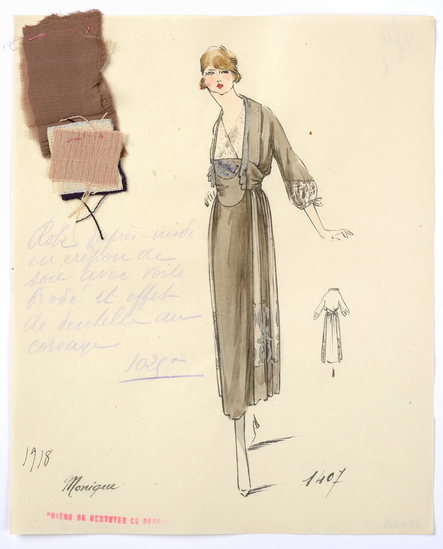 Robe d'après-midi
en crépon de
soie avec voile
brodé et effet
de dentelle au
corsage
1918
Monique
1407
PRIÈRE DE RETOURNER CE DESSIN